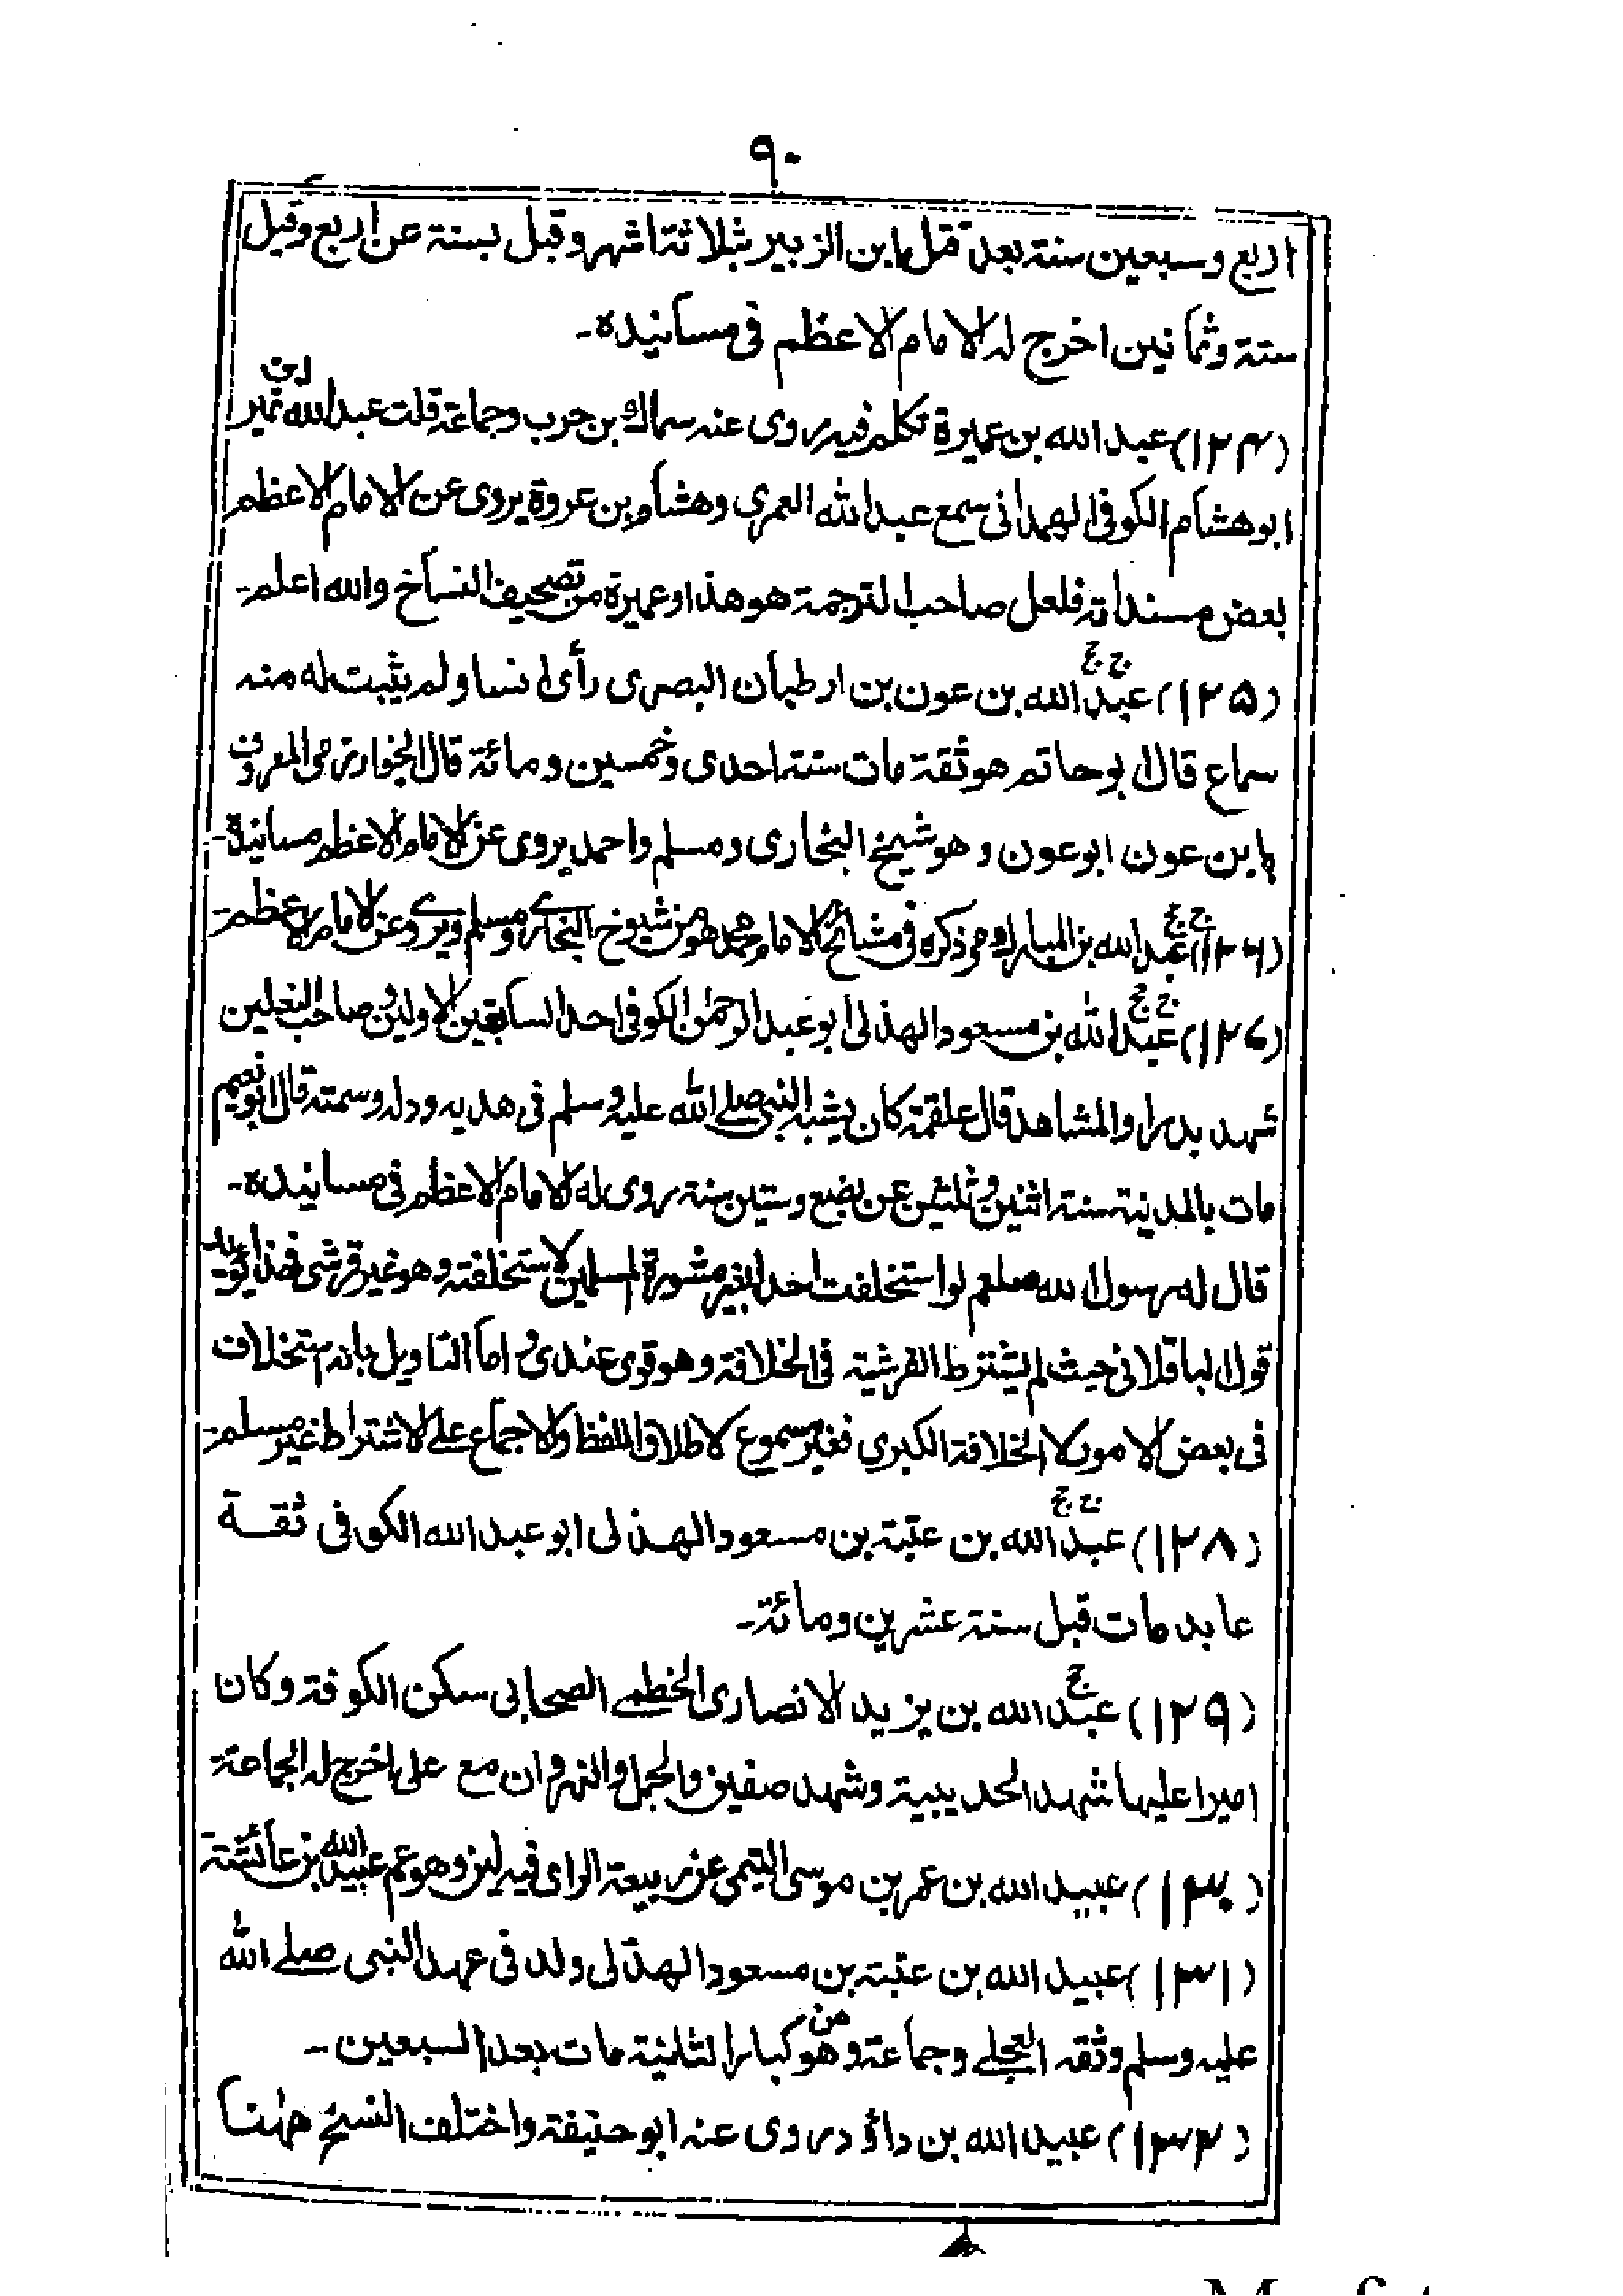 ٩٠
اربع وسبعين سنة بعد قتل ابن الزبير بثلاثة اشهر وقيل بسنة عن اربع وقيل
ستة وثمانين اخرج له الامام الاعظم فى مسانيده۔
(۱۲۴) عبد الله بن عميرة تكلم فيه روى عنه سماك بن حرب وجماعة قلت عبد الله ابن نمير
ابوهشام الكوفى الهمدانى سمع عبد الله العمرى وهشام بن عروة يروى عن الامام الاعظم
بعض مسنداته فلعل صاحب الترجمة هو هذا وعميرة من تصحيف النساخ والله اعلم۔
(۱۲۵) عبد الله بن عون بن ارطبان البصرى رأى انسا ولم يثبت له منه
سماع قال ابو حاتم هو ثقة مات سنة احدى وخمسين ومائة قال الخوارزمى المعروف
بابن عون ابوعون وهو شيخ البخارى ومسلم واحمد يروى عن الامام الاعظم مسانيدة۔
(۱۲۶) عبد الله بن المبارك ذكره فى مشائخ الامام محمد وهو من شيوخ البخارى ومسلم ويروى عن الامام الاعظم۔
(۱۲۷) عبد الله بن مسعود الهذلى ابو عبد الرحمٰن الكوفى احد السابقين الاولين وصاحب النعلين
شهد بدرا والمشاهد قال علقمة كان يشبه النبى صلى الله عليه وسلم فى هديه ودله وسمته قال ابو نعيم
مات بالمدينة سنة اثنين وثلثين عن بضع وستين سنة روى له الامام الاعظم فى مسانيده۔
قال له رسول الله صلعم لو استخلفت احدا بغير مشورة المسلمين لاستخلفته وهو غير قرشى فهذا يؤيد
قول الباقلانى حيث لم يشترط القرشية فى الخلافة وهو قوى عندى واما التاويل بانه استخلاف
فى بعض الامور لا الخلافة الكبرى فغير مسموع لاطلاق اللفظ والاجماع على الاشتراط غير مسلم۔
(۱۲۸) عبد الله بن عتبة بن مسعود الهذلى ابو عبد الله الكوفى ثقة
عابد مات قبل سنة عشرين ومائة۔
(۱۲۹) عبد الله بن يزيد الانصارى الخطمى الصحابى سكن الكوفة وكان
اميرا عليها شهد الحديبية وشهد صفين والجمل والنهروان مع على اخرج له الجماعة
(۱۳۰) عبيد الله بن عمر بن موسى التيمى عن ربيعة الراى فيه لين وهو عم عبيد الله بن عائشة
(۱۳۱) عبيد الله بن عتبة بن مسعود الهذلى ولد فى عهد النبى صلى الله
عليه وسلم وثقه العجلى وجماعة وهو من كبار الثانية مات بعد السبعين۔
(۱۳۲) عبيد الله بن داؤد روى عنه ابو حنيفة واختلف النسخ ههنا